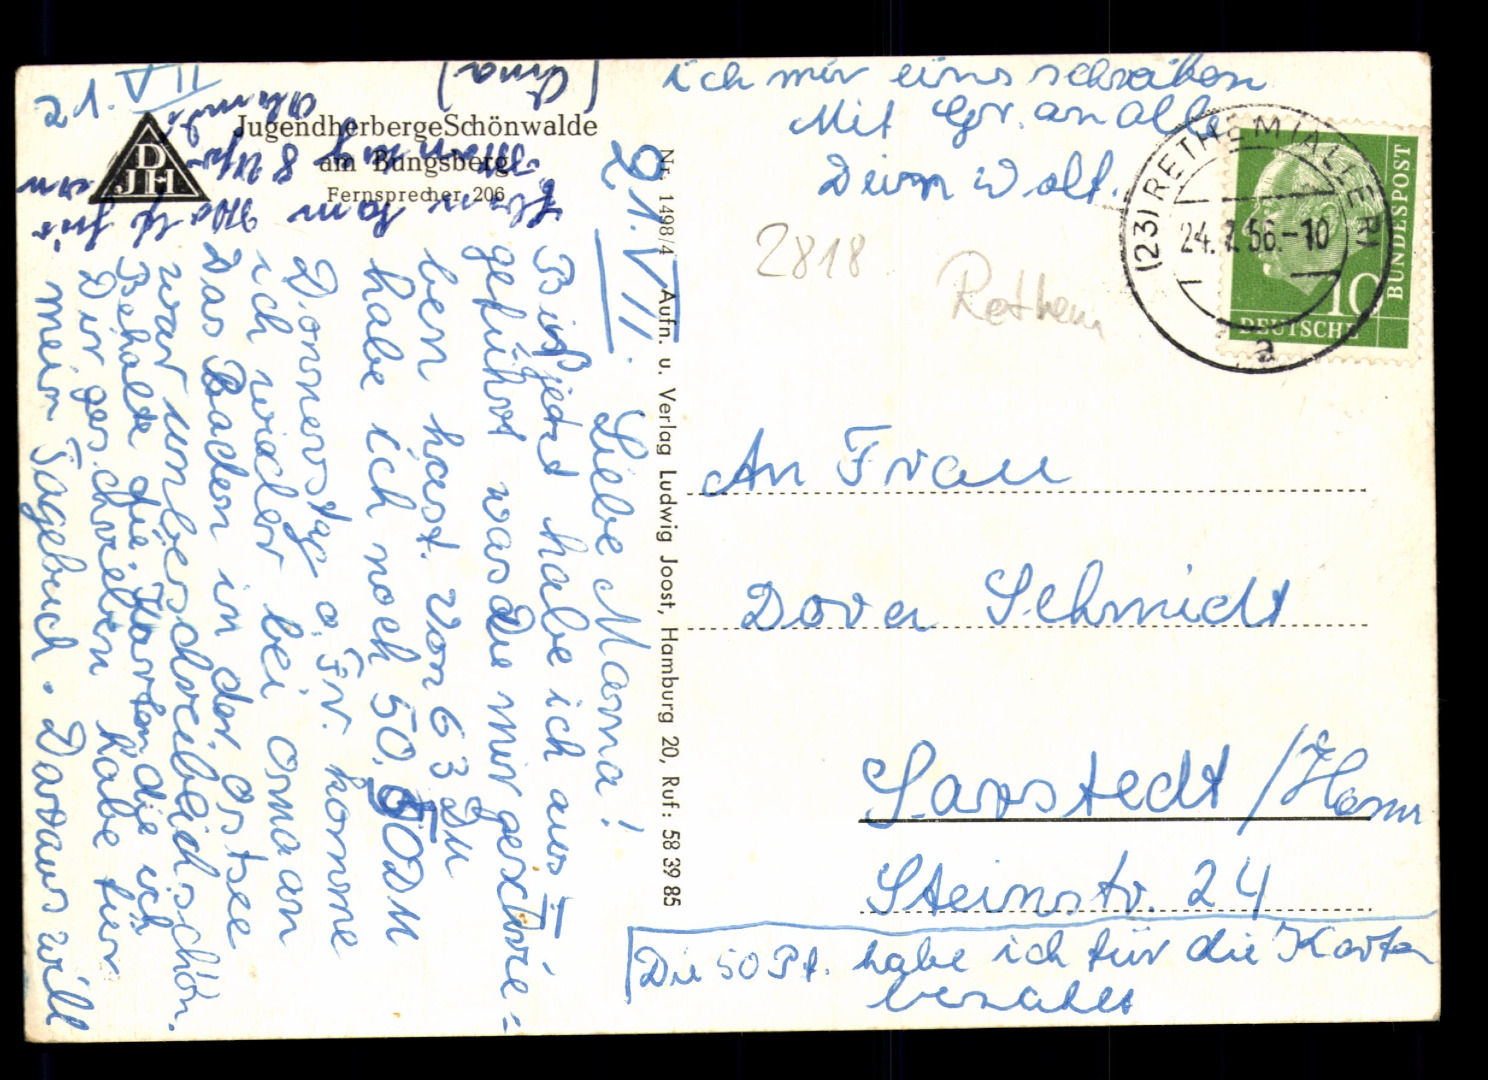 Jugendherberge Schönwalde
am Bungsberg
Fernsprecher 206
DJH
21.VII
(Oma)
21.VII. Liebe Mama!
Bis jetzt habe ich aus
geführt was du mir geschrie=
ben hast. Von 63 DM
habe ich noch 50,50 DM
Donnerstag o. Fr. komme
ich wieder bei Oma an
Das Baden in der Ostsee
war unbeschreiblich schön.
Behalte die Karten die ich
Dir geschrieben habe für
mein Tagebuch. Daraus will
ich mir eins schreiben
Mit Gr. an alle
Dein Wolf.
Nr. 1498/4 Aufn. u. Verlag Ludwig Joost, Hamburg 20, Ruf: 58 39 85
2818
Rethem
(23) RETHEM (ALLER)
24.7.56.-10
a
10
DEUTSCHE
BUNDESPOST
An Frau
Dora Schmidt
Sarstedt / Hann
Steinstr. 24
Die 50 Pf. habe ich für die Karten
bezahlt